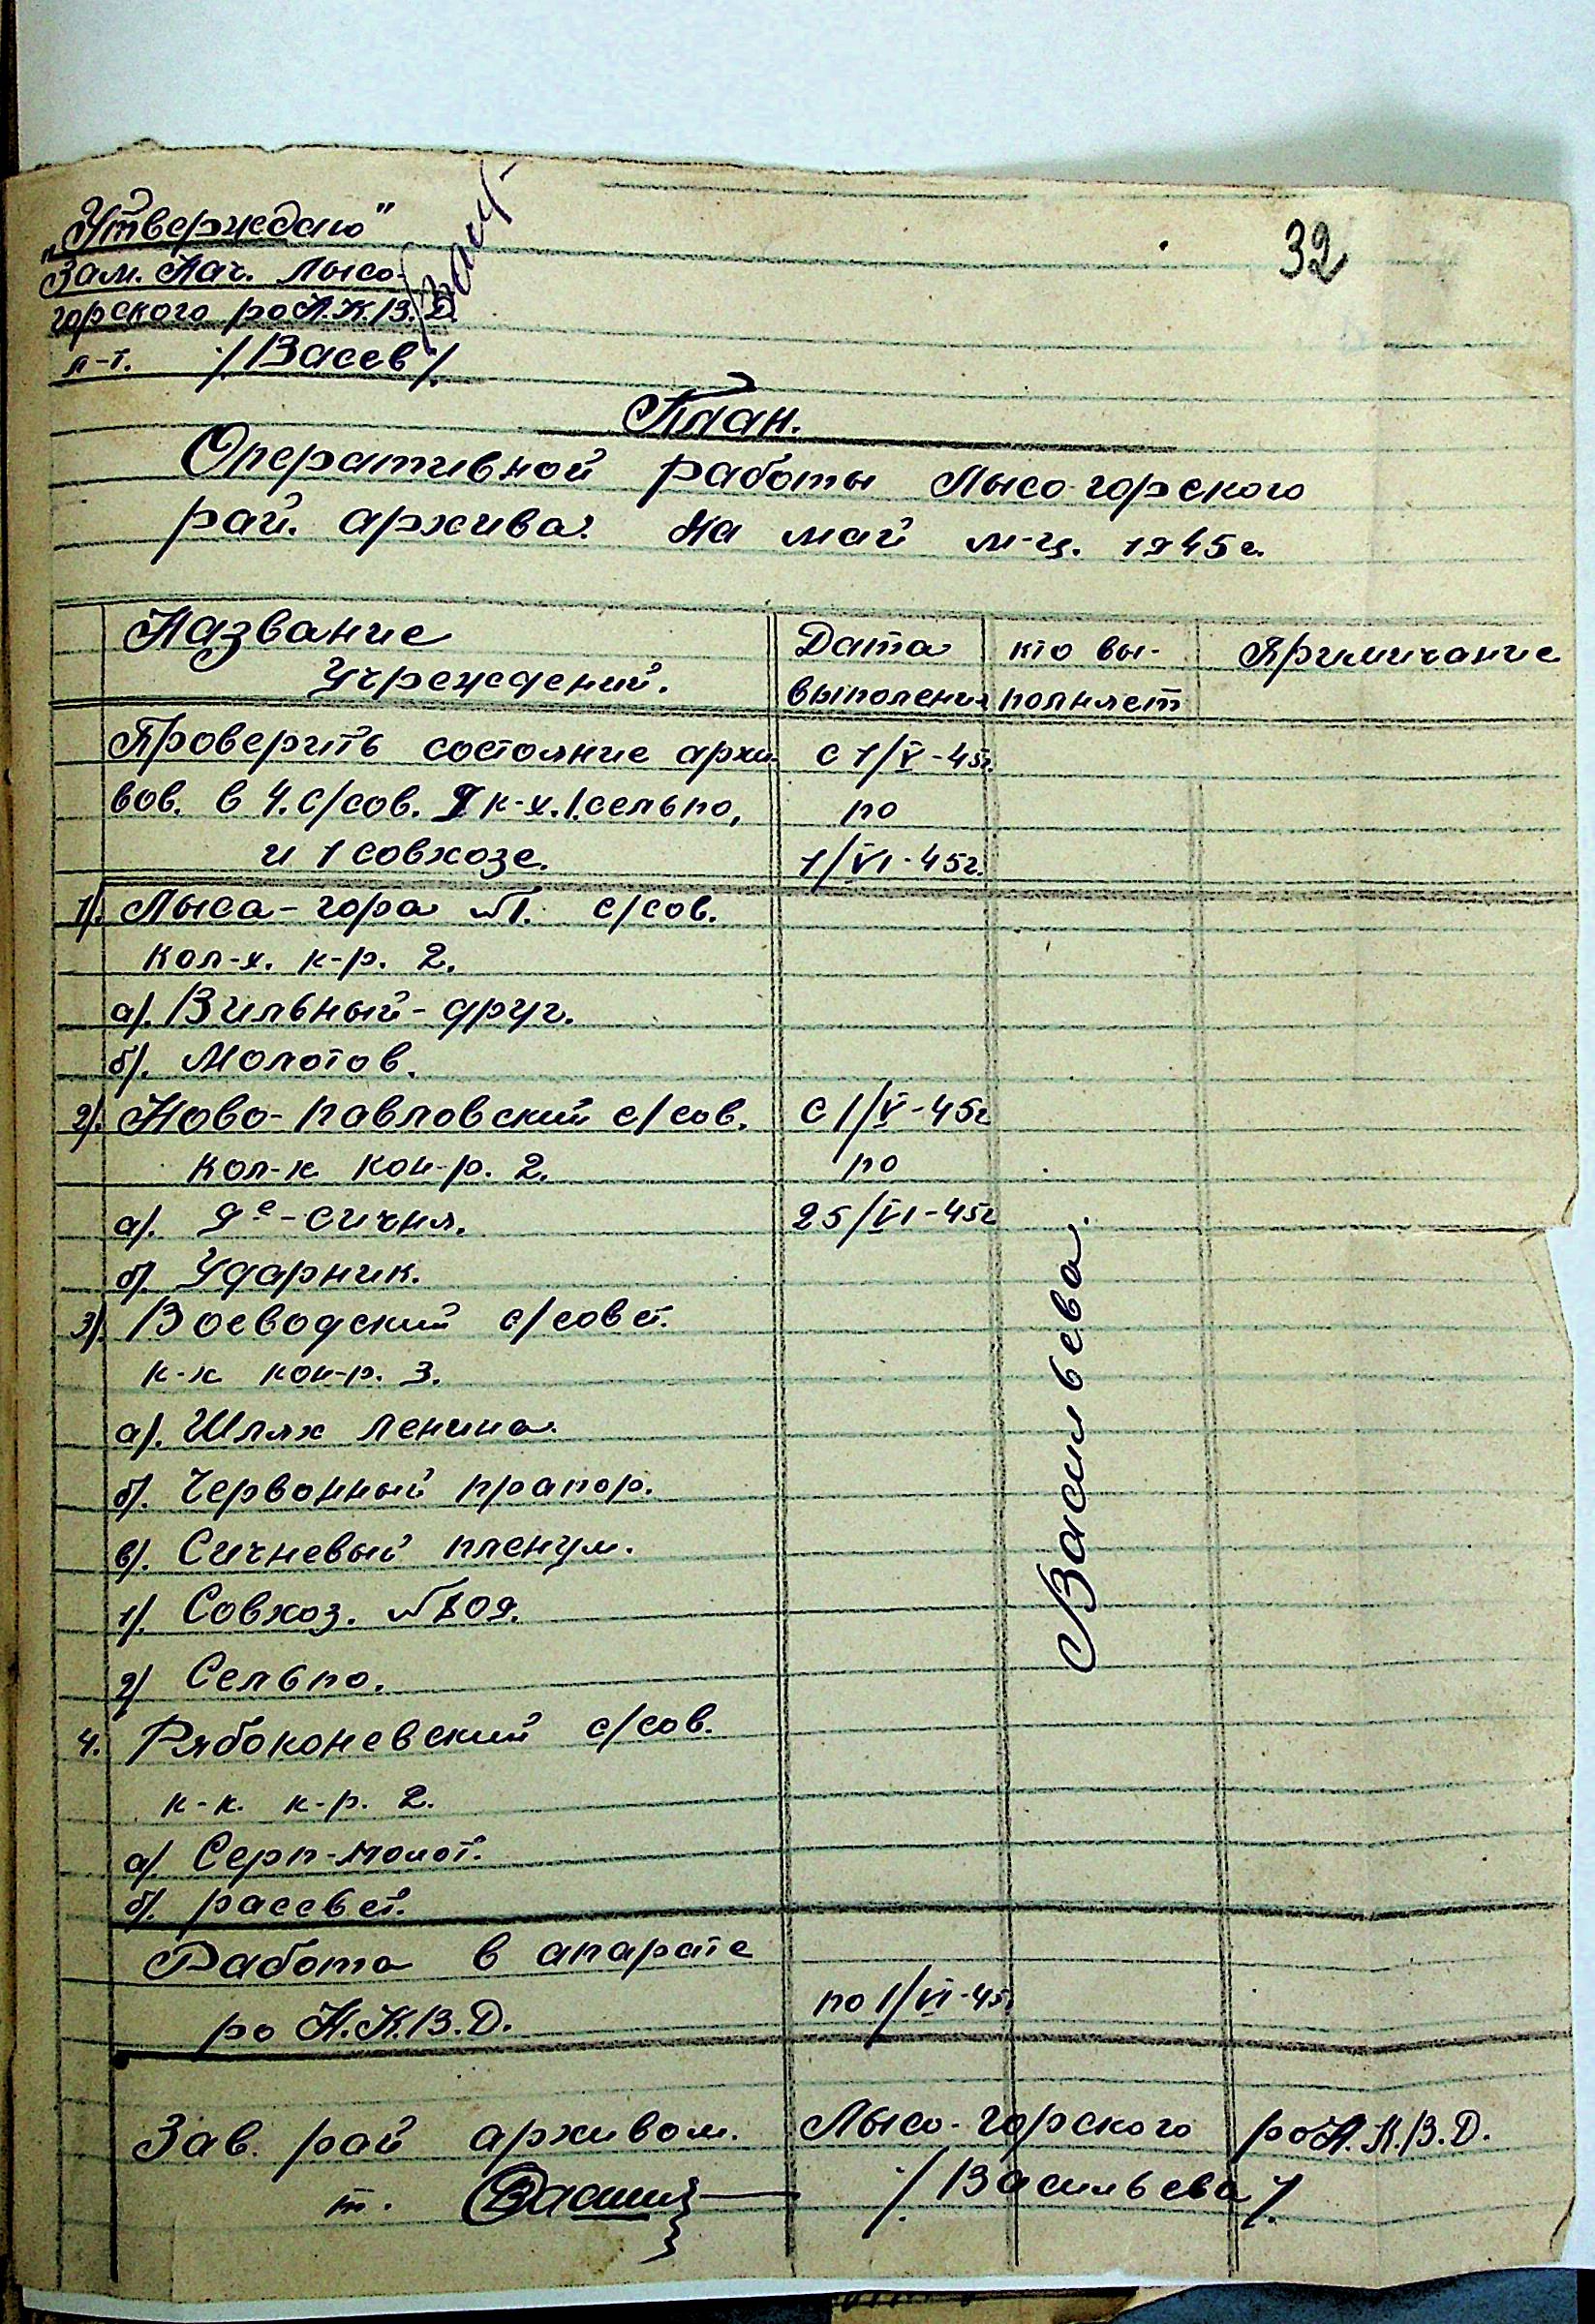 „Утверждаю"
32
Зам. Нач. Лысо-
горского ро Н.К.В.Д.
л-т. /Васев/.
План.
Оперативной работы Лысо-горского
рай. архива. На май м-ц. 1945г.
Название Учреждений.
Дата выполения
кто вы-полняет
Примичание
Проверить состояние архи- с 1/V-45г.
вов. в 4. с/сов. 9 к-х. 1. сельпо, по
и 1 совхозе. 1/VI-45г.
1/. Лыса-гора №1. с/сов.
кол-х. к-р. 2.
а/. Вильный-друг.
б/. Молотов.
2/. Ново-павловский с/сов. с 1/V-45г
кол-х кон-р. 2. по
а/. 9е-сичня. 25/VI-45г
б/. Ударник.
3/. Воеводский с/совет.
к-х кон-р. 3.
а/. Шлях Ленина.
б/. Червонный прапор.
в/. Сичневый пленум.
1/. Совхоз. №809.
2/ Сельпо.
Васильева.
4. Рябоконевский с/сов.
к-х. к-р. 2.
а/. Серп-молот.
б/. рассвет.
Работа в апарате
ро Н.К.В.Д. по 1/VI-45г
Зав. рай архивом. Лысо-горского роН.К.В.Д.
т. /Васильева/.